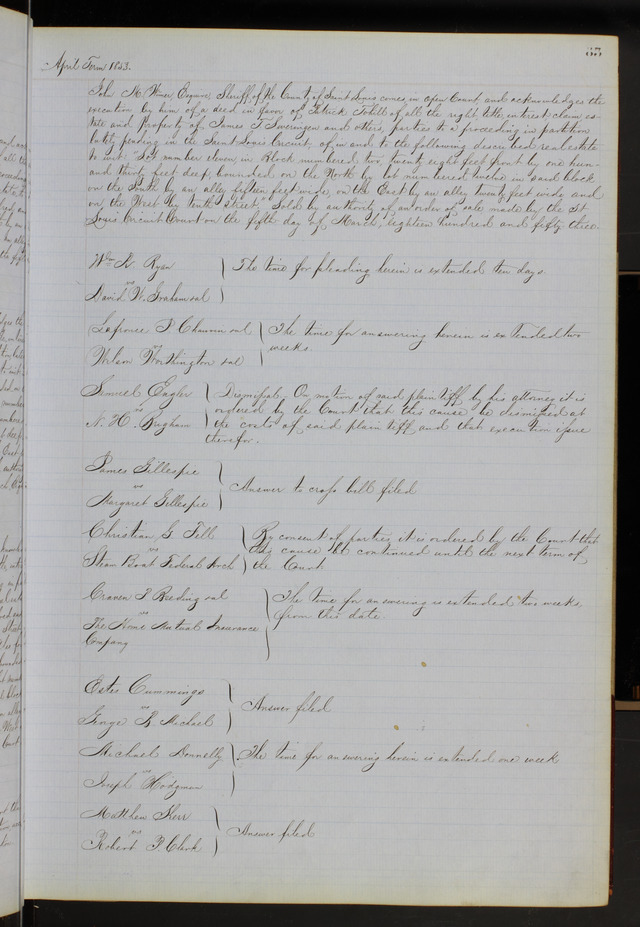 April Term 1853.
John M. Wimer, Esquire, Sheriff of the County of Saint Louis comes in open Court and acknowledges the
execution by him of a deed in favor of Patrick of all the right, title, interest claim es-
tate and Property of James T Sweringen and others, parties to a proceeding in partition
lately pending in the Saint Louis Circuit, of in and to the following described real estate
to wit: "Lot number eleven, in Block numbered two, twenty eight feet front by one hun-
and thirty feet deep, bounded on the North by lot numbered twelve in said block,
on the South by an alley fifteen feet wide, on the East by an alley twenty feet wide and
on the West by tenth street." Sold by authority of an order of sale made by the St.
Louis Circuit Court on the fifth day of March, eighteen hundred and fifty three.
Wm H. Ryan
vs
David W. Graham et al
The time for pleading herein is extended ten days.
T Chauvin et al
vs
Wilson Worthington et al
The time for answering herein is extended two
weeks.
Samuel Engler
vs
N. H. Brigham
Dismissal. On motion of said plaintiff by his attorney it is
ordered by the Court that this cause be dismissed at
the costs of said plaintiff and that execution issue
therefor.
James Gillespie
vs
Margaret Gillespie
Answer to cross bill filed
Christian G. Fell
vs
Steam Boat Federal Arch
By consent of parties it is ordered by the Court that
this cause be continued until the next term of
the Court
Craven S Reeding et al
vs
The Home Mutual Insurance
Company
The time for answering is extended two weeks,
from this date.
Estes Cummings
vs
George R Michael
Answer filed
Michael Donnelly
vs
Joseph Hodgman
The time for answering herein is extended one week
Matthew Kerr
vs
Robert P. Clark
Answer filed